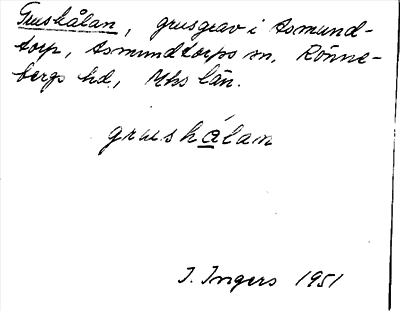 Gruskålan, grusgrav i Asmund-
torp, Asmundtorps sn, Rönne-
bergs hd., Mhs län.
grųskálan
I. Ingers 1951